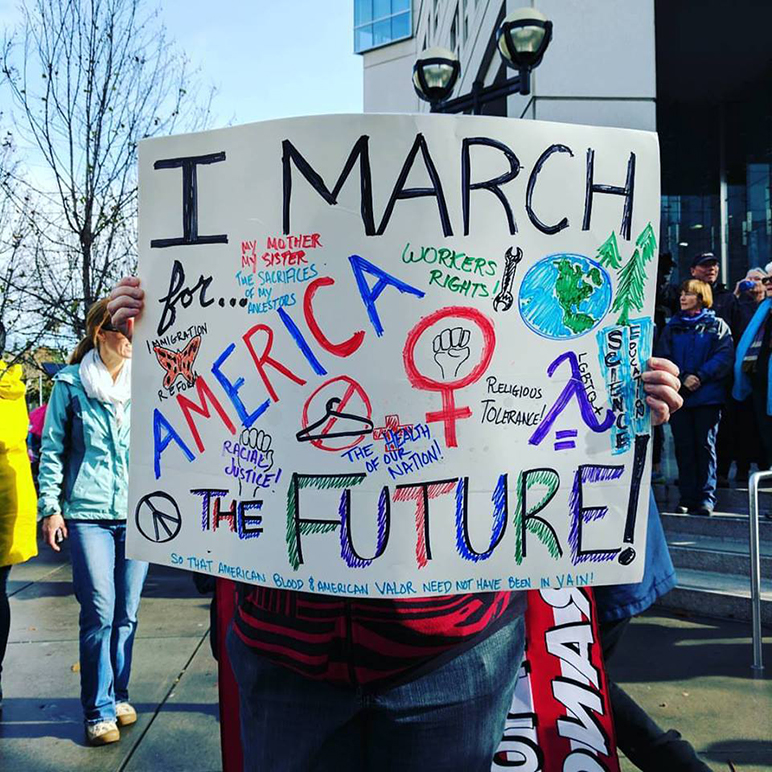 I MARCH
for...
MY MOTHER
MY SISTER
THE SACRIFICES
OF MY
ANCESTORS
WORKERS
RIGHTS!
AMERICA
IMMIGRATION
REFORM
RELIGIOUS
TOLERANCE!
LGBTQ+
=
SCIENCE
EDUCATION
RACIAL
JUSTICE!
THE HEALTH
OF OUR
NATION!
THE FUTURE!
SO THAT AMERICAN BLOOD & AMERICAN VALOR NEED NOT HAVE BEEN IN VAIN!